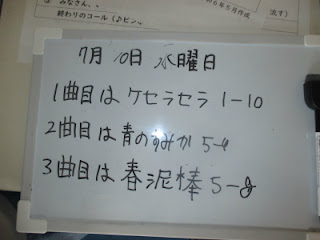 ② みなさん、、
終わりのコール(♪ピン
年5月作成
流す)
7月10日水曜日
1曲目はケセラセラ1-10
2曲目は青のすみか5-4
3曲目は春泥棒5-8